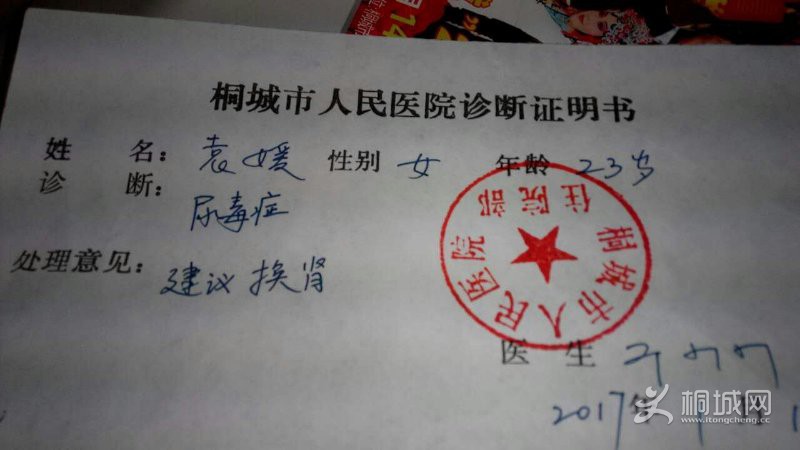 桐城市人民医院诊断证明书
姓 名：袁媛 性别 女 年龄 23岁
诊 断：尿毒症
处理意见：建议换肾
桐城市人民医院
住院部
医 生
2017年
桐城网
www.itongcheng.com
14